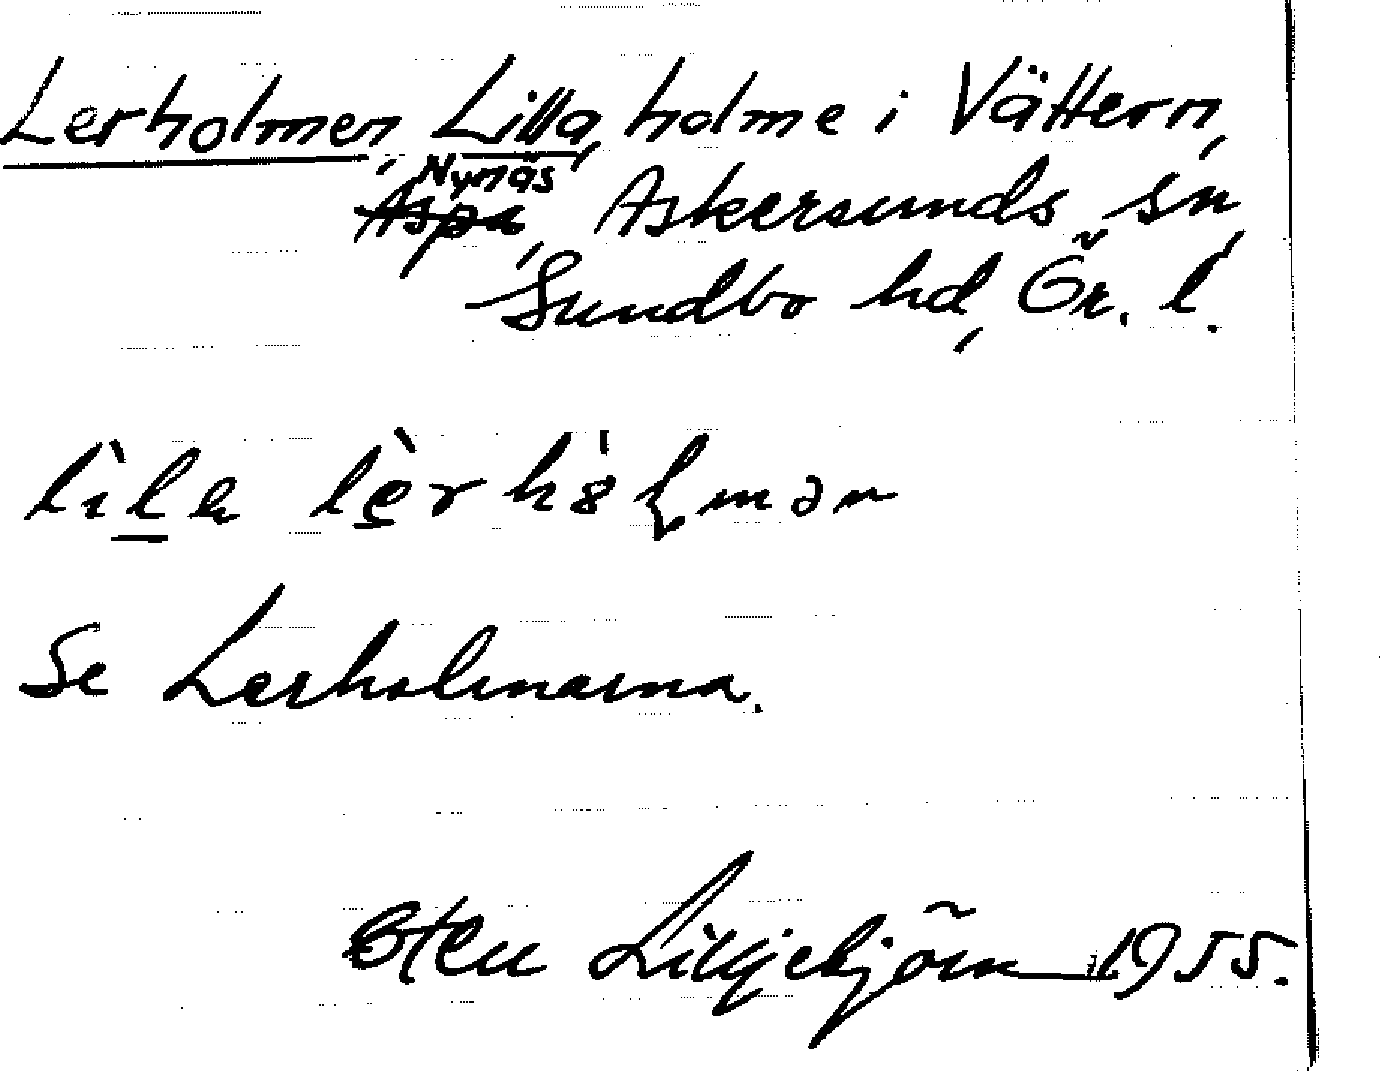 Lerholmen, Lilla, holme i Vättern,
Nynäs
Aspa, Askersunds sn,
Sundbo hd, Ör. l.
lìla lèrhȯlmən
Se Lerholmarna.
Sten Lilljebjörn 1955.